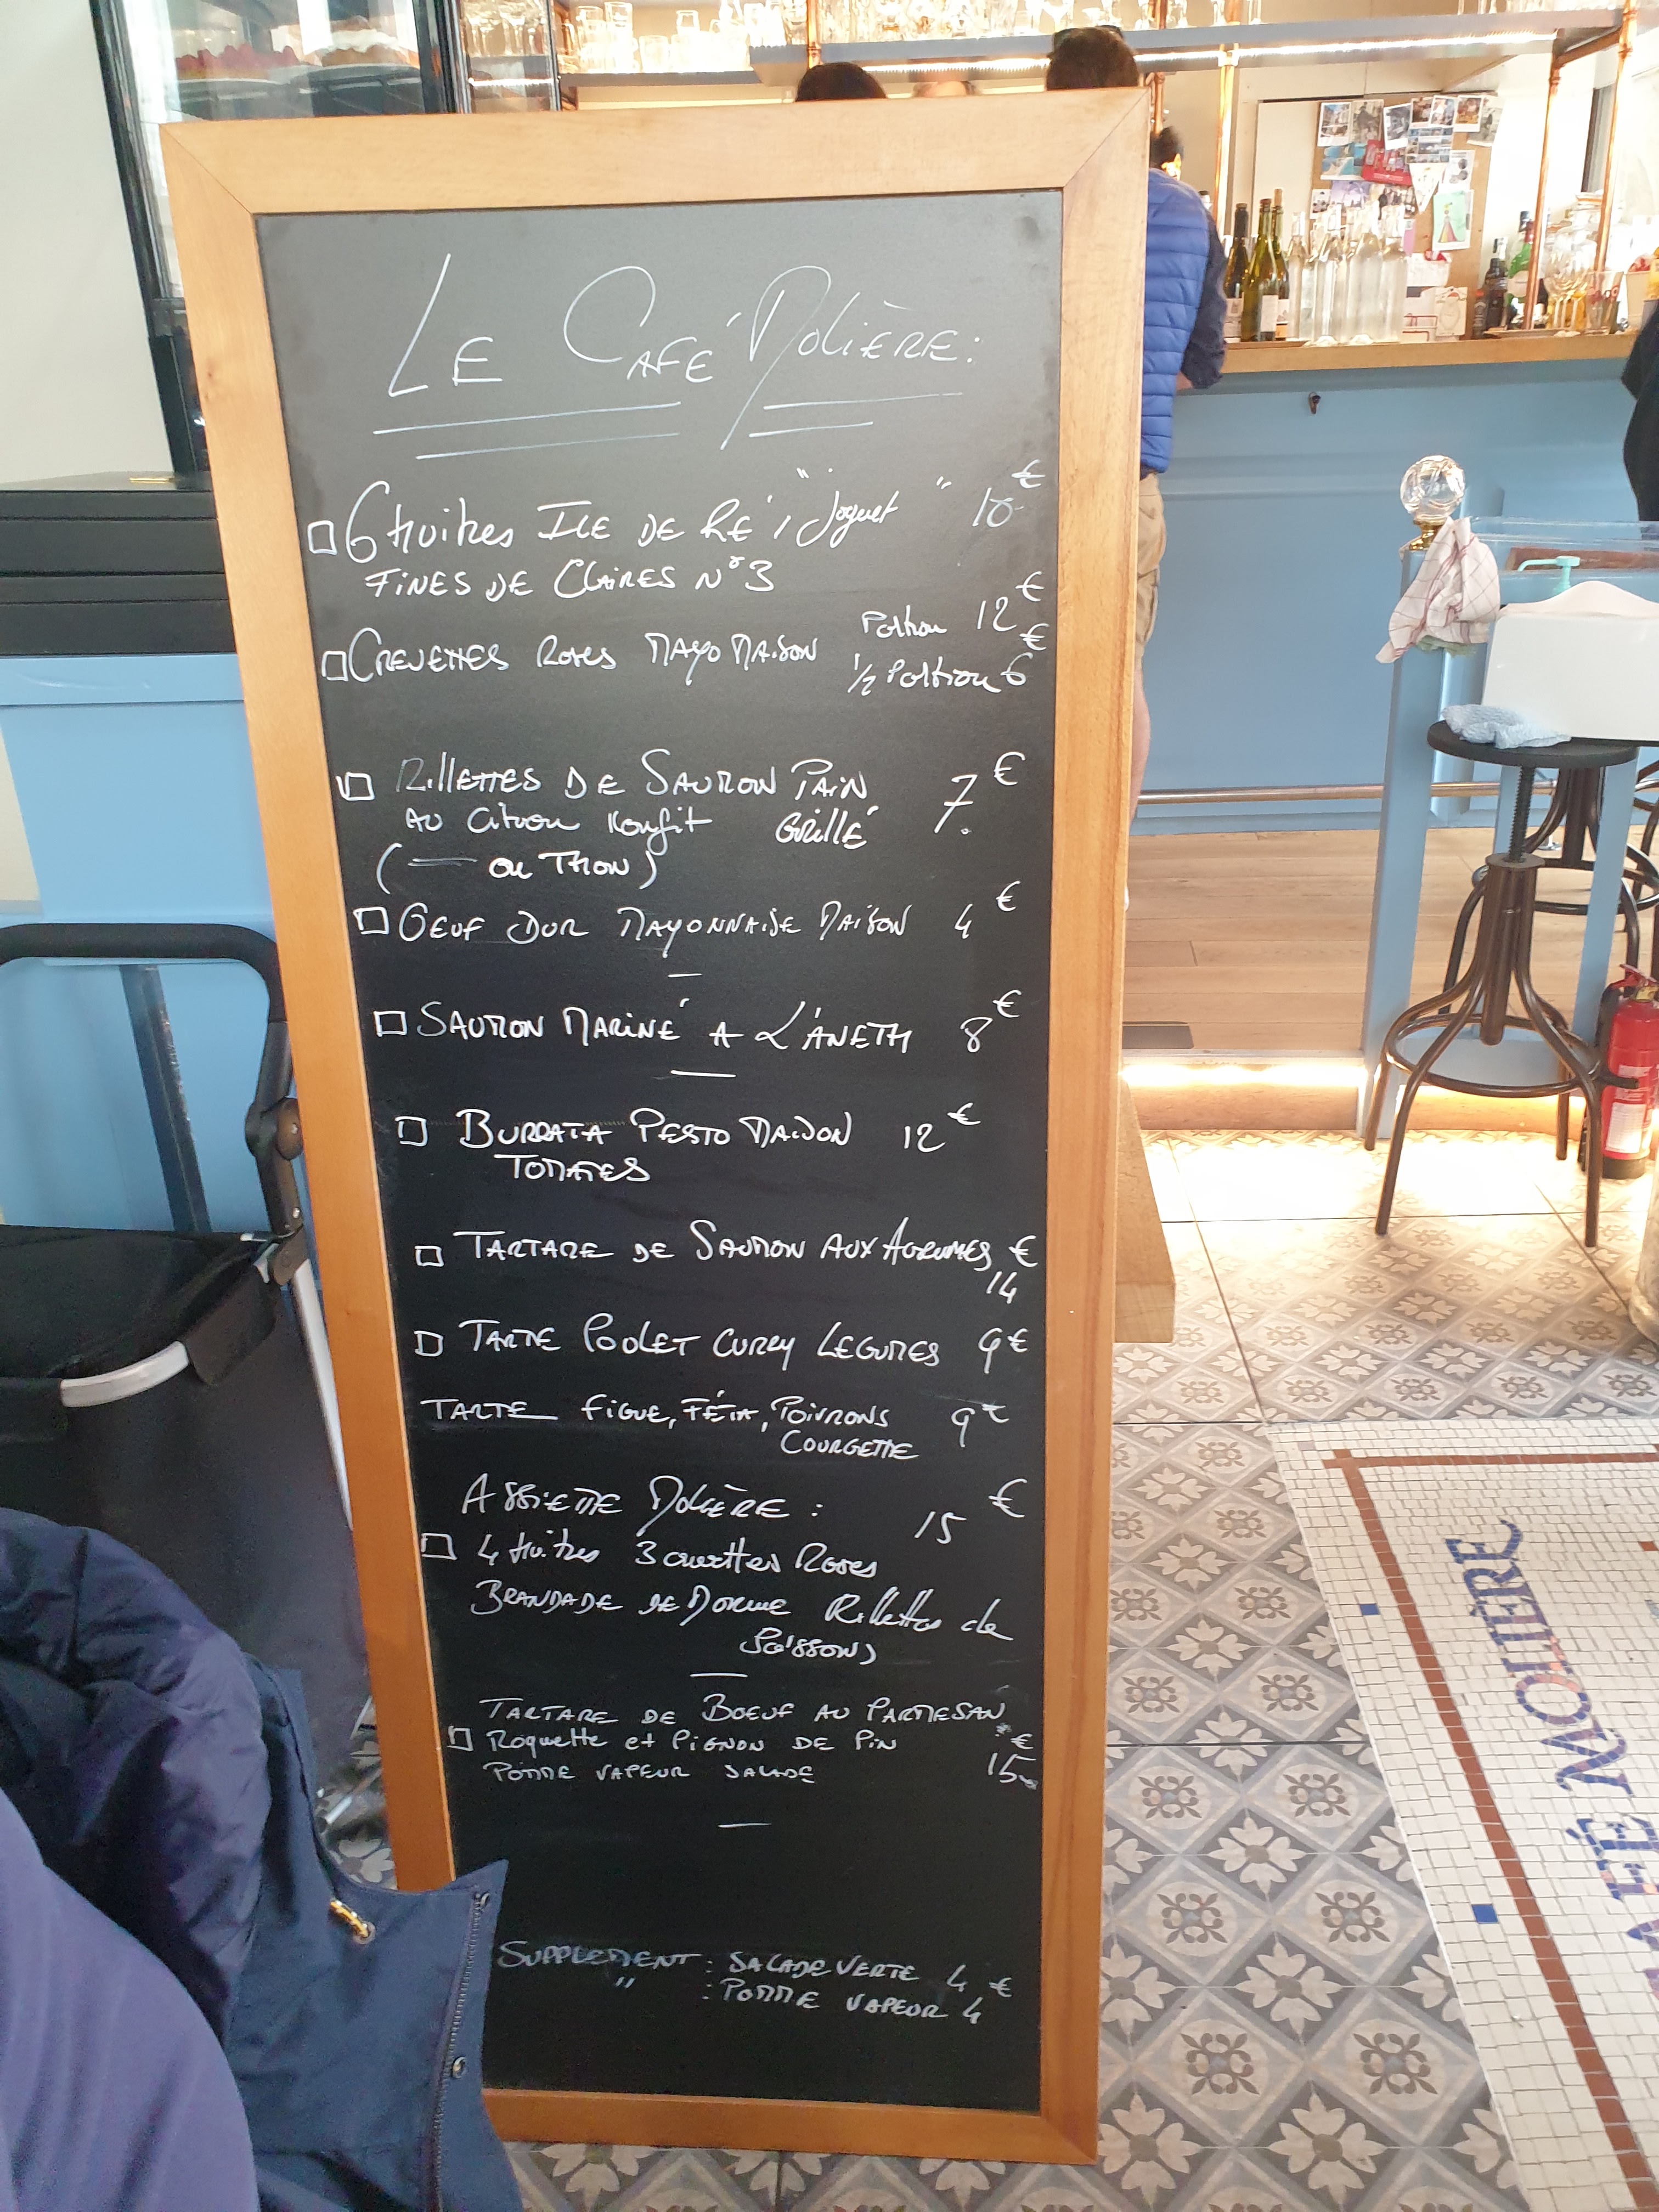 LE CAFÉ MOLIÈRE:
6 Huitres ILE DE RÉ, "Joguet" 10€
FINES DE CLAIRES N°3
CREVETTES ROSES MAYO MAISON Portion 12€
1/2 Portion 6€
RILLETTES DE SAUMON PAIN 7€
AU Citron Konfit GRILLÉ
(— ou THON)
OEUF DUR MAYONNAISE MAISON 4€
SAUMON MARINÉ A L'ANETH 8€
BURRATA PESTO MAISON 12€
TOMATES
TARTARE DE SAUMON AUX AGRUMES €
14
TARTE POULET CURRY LEGUMES 9€
TARTE FIGUE, FÉTA, POIVRONS 9€
COURGETTE
ASSIETTE MOLIÈRE : 15€
4 Huitres 3 crevettes Roses
BRANDADE DE MORUE Rillettes de
POISSON)
TARTARE DE BOEUF AU PARMESAN
Roquette et PIGNON DE PIN €
POMME VAPEUR SALADE 15
SUPPLEMENT : SALADE VERTE 4 €
" : POMME VAPEUR 4
AFÉ MOLIÈRE